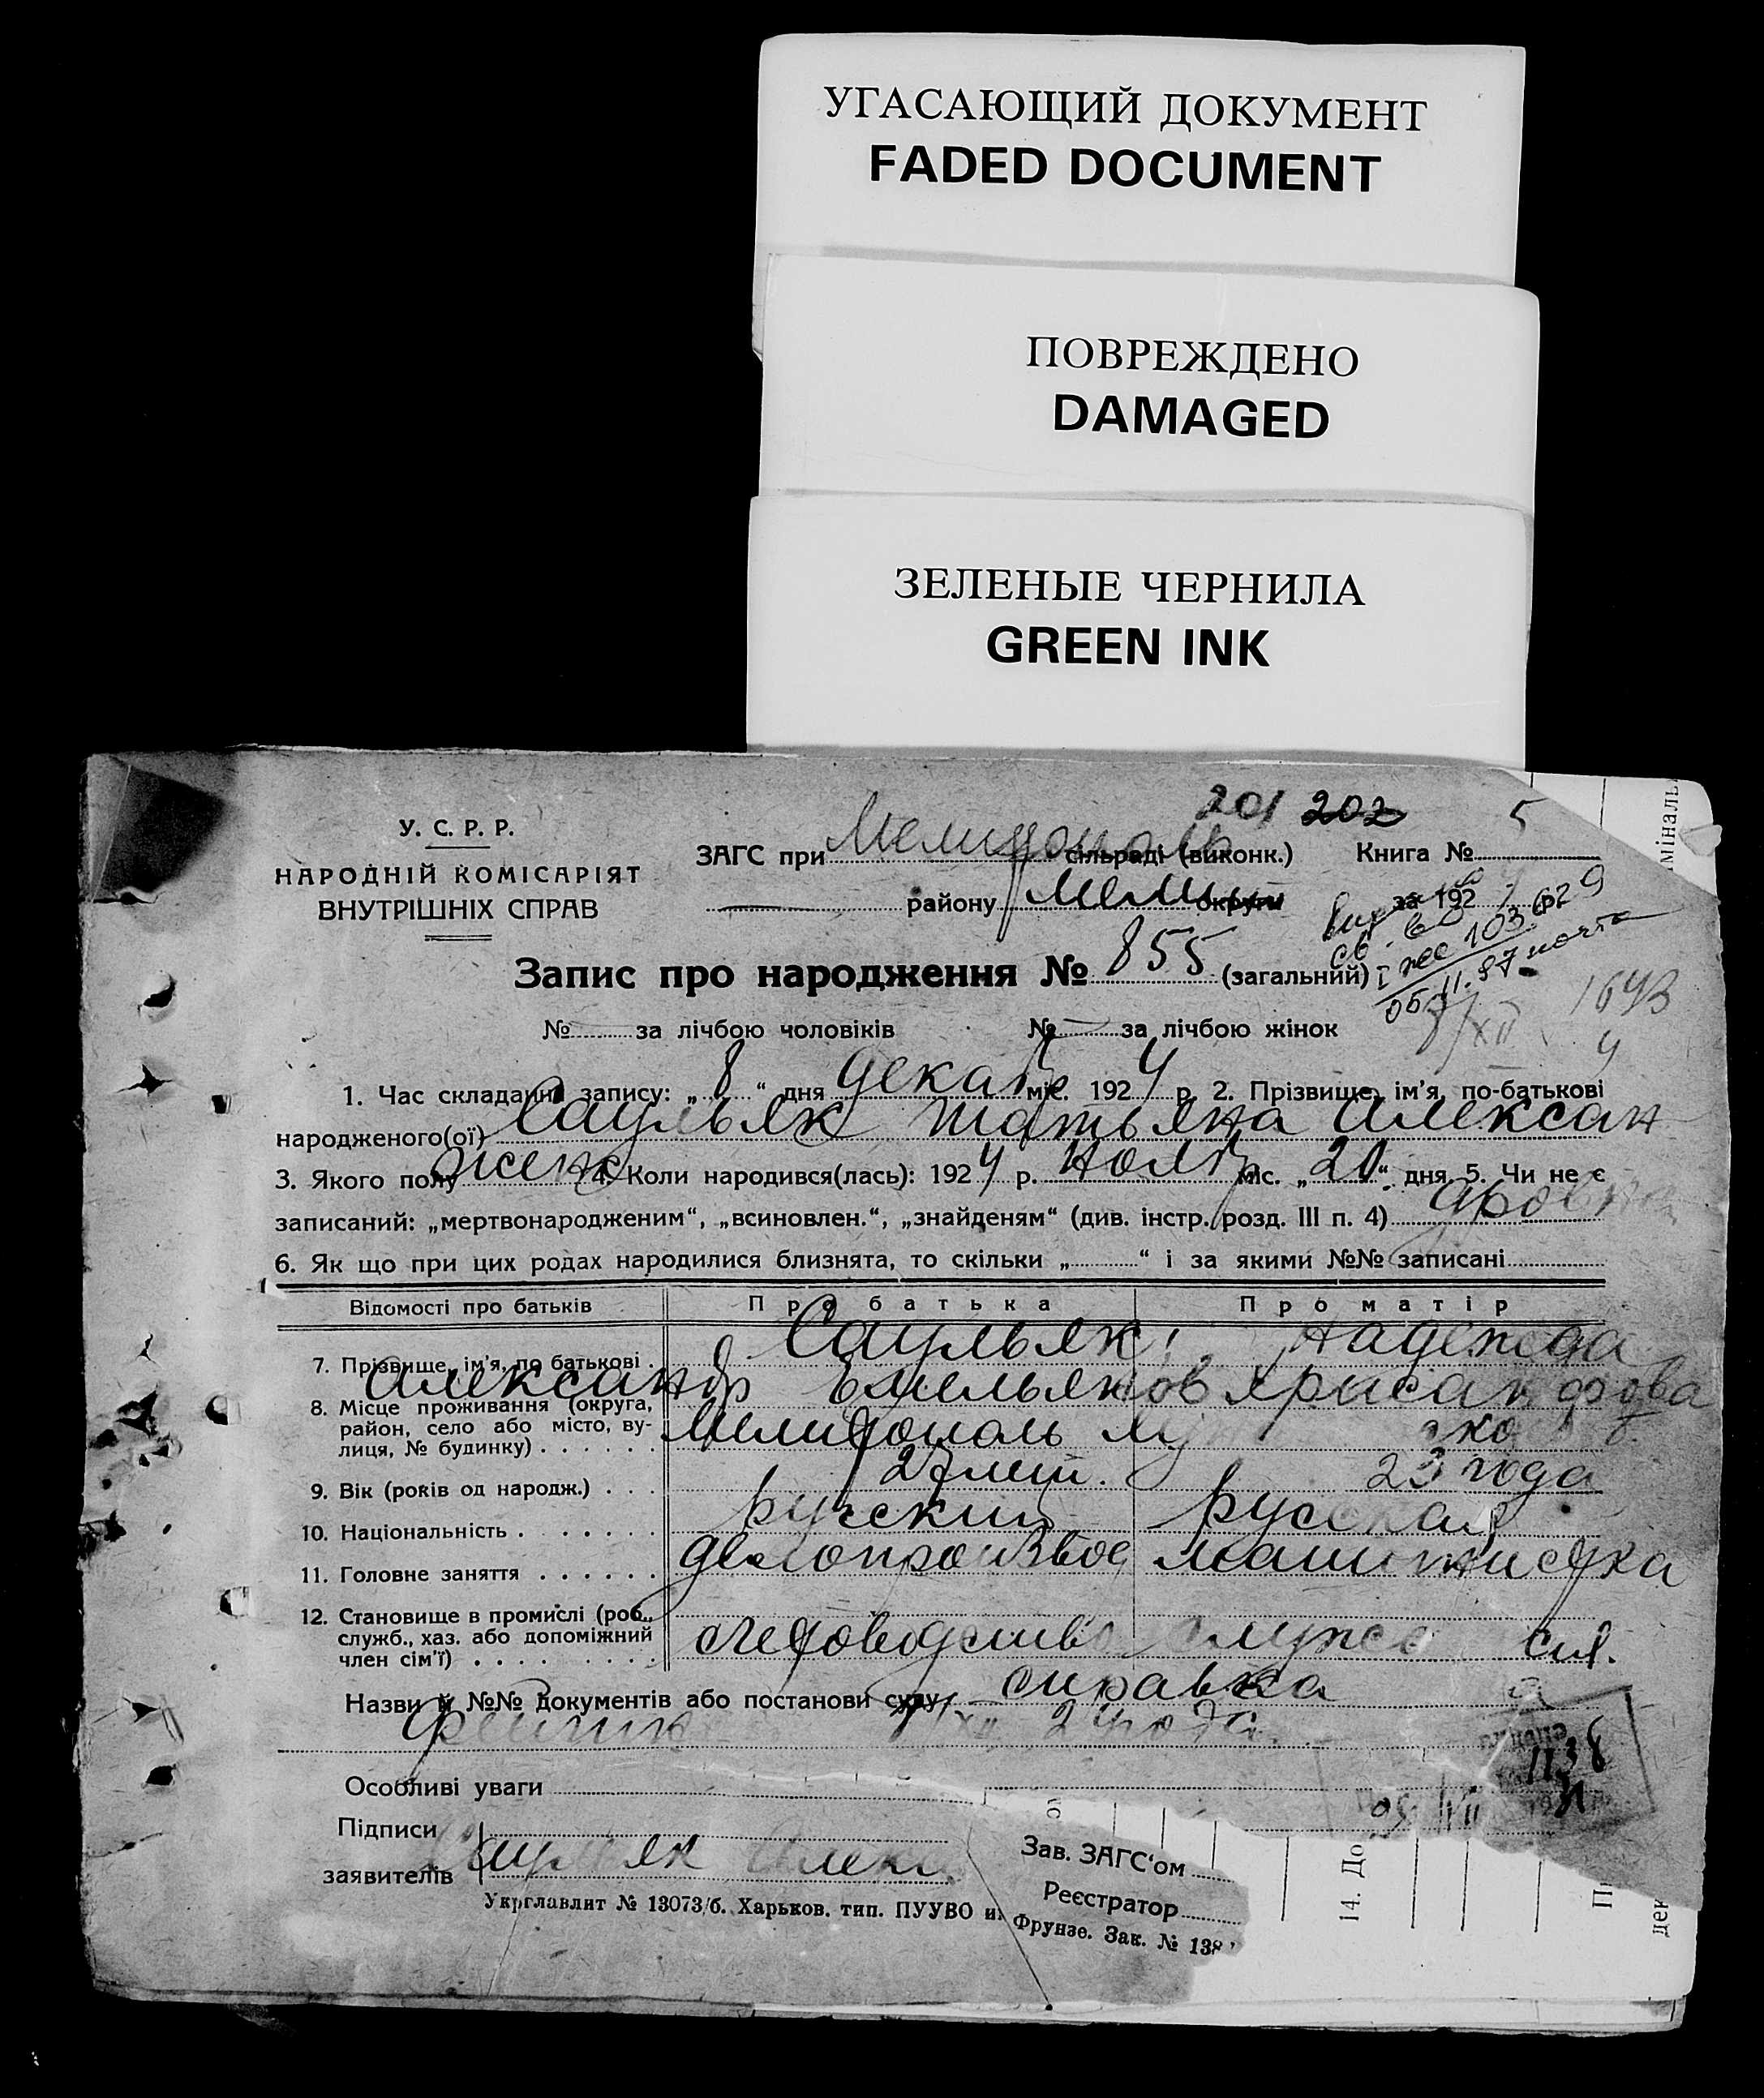 УГАСАЮЩИЙ ДОКУМЕНТ
FADED DOCUMENT
ПОВРЕЖДЕНО
DAMAGED
ЗЕЛЕНЫЕ ЧЕРНИЛА
GREEN INK
201 202 5
У. С. Р. Р.
НАРОДНІЙ КОМІСАРІЯТ
ВНУТРІШНІХ СПРАВ
ЗАГС при Мелитополь сільраді (виконк.) Книга №
району Мелит округи за 192 р.
Запис про народження № 855 (загальний)
св.
11.87 почта
1643
№ за лічбою чоловіків № за лічбою жінок
8/XII 4
1. Час складання запису: „8“ дня декаб міс. 1924 р. 2. Прізвище, ім'я, по-батькові
народженого(ої) Саульяк Татьяна Алексан
3. Якого полу женс 4. Коли народився(лась): 1924 р. нояб міс. „20“ дня. 5. Чи не є
дровна
записаний: „мертвонародженим“, „всиновлен.“, „знайденям“ (див. інстр. розд. III п. 4)
6. Як що при цих родах народилися близнята, то скільки „ “ і за якими №№ записані
Відомості про батьків Про батька Про матір
Саульяк Надежда
7. Прізвище, ім'я, по батькові
Александр Емельянов Хрисанфова
8. Місце проживання (округа,
район, село або місто, ву-
лиця, № будинку) Мелитополь
9. Вік (років од народж.) 27 лет. 23 года
10. Національність русский русская
11. Головне заняття делопроизвод машинистка
12. Становище в промислі (роб.,
служб., хаз. або допоміжний
член сім'ї) счетоводство
Назви й №№ документів або постанови суду справка
XII 24 года
1138
31
Особливі уваги
Підписи
заявителів Саульяк Алекс
Зав. ЗАГС'ом
Реєстратор
14. До
Укрглавлит № 13073/б. Харьков. тип. ПУУВО и
Фрунзе. Зак. № 138